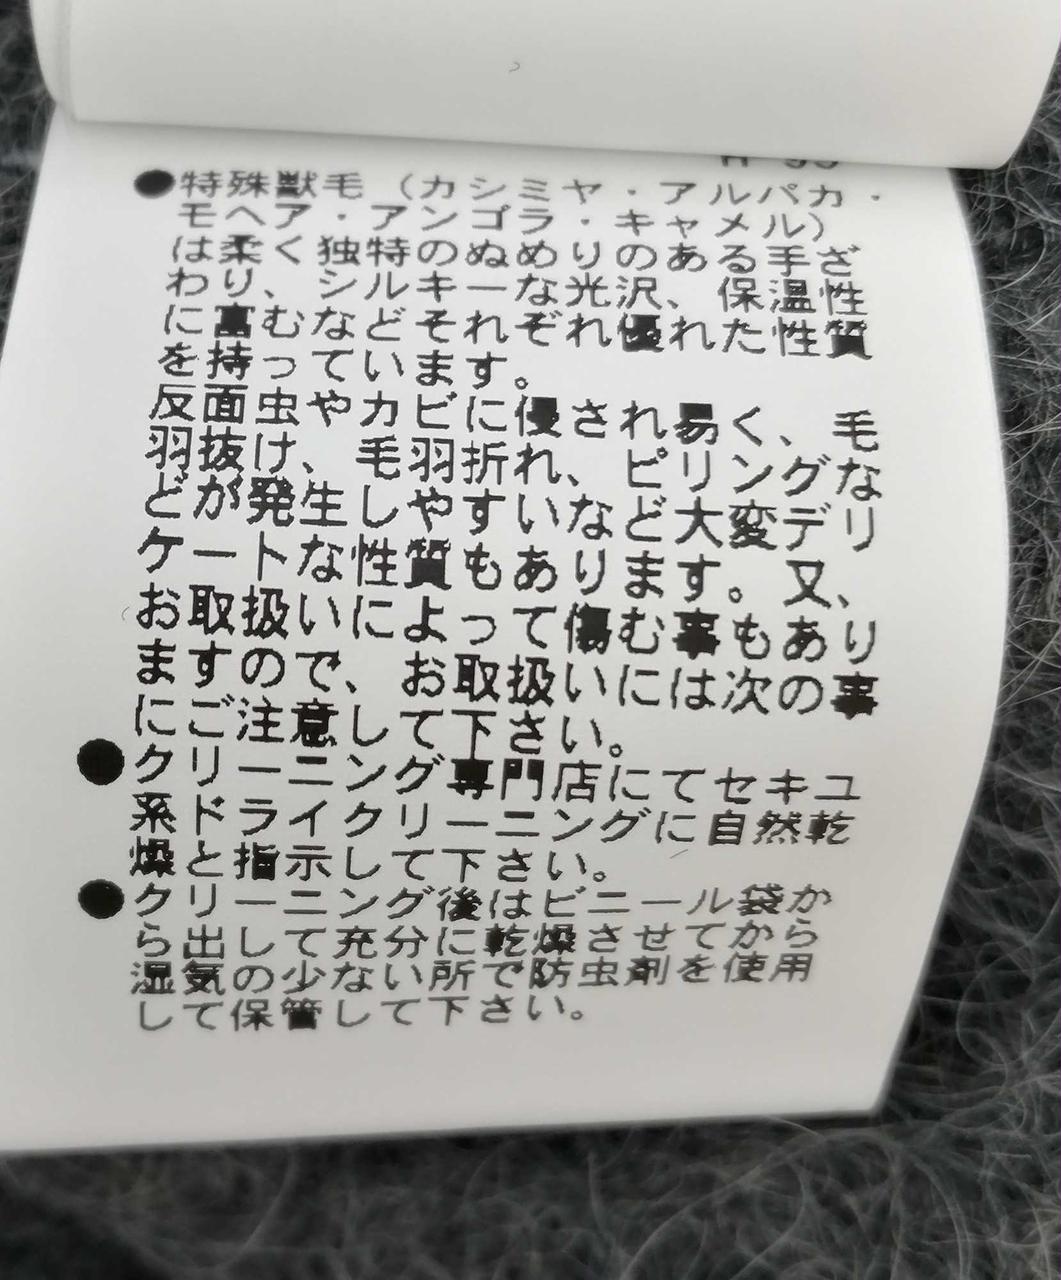 ●特殊獣毛（カシミヤ・アルパカ・
モヘア・アンゴラ・キャメル）
は柔く独特のぬめりのある手ざ
わり、シルキーな光沢、保温性
に富むなどそれぞれ優れた性質
を持っています。
反面虫やカビに侵され易く、毛
羽抜け、毛羽折れ、ピリングな
どが発生しやすいなど大変デリ
ケートな性質もあります。又、
お取扱いによって傷む事もあり
ますので、お取扱いには次の事
にご注意して下さい。
●クリーニング専門店にてセキユ
系ドライクリーニングに自然乾
燥と指示して下さい。
●クリーニング後はビニール袋か
ら出して充分に乾燥させてから
湿気の少ない所で防虫剤を使用
して保管して下さい。